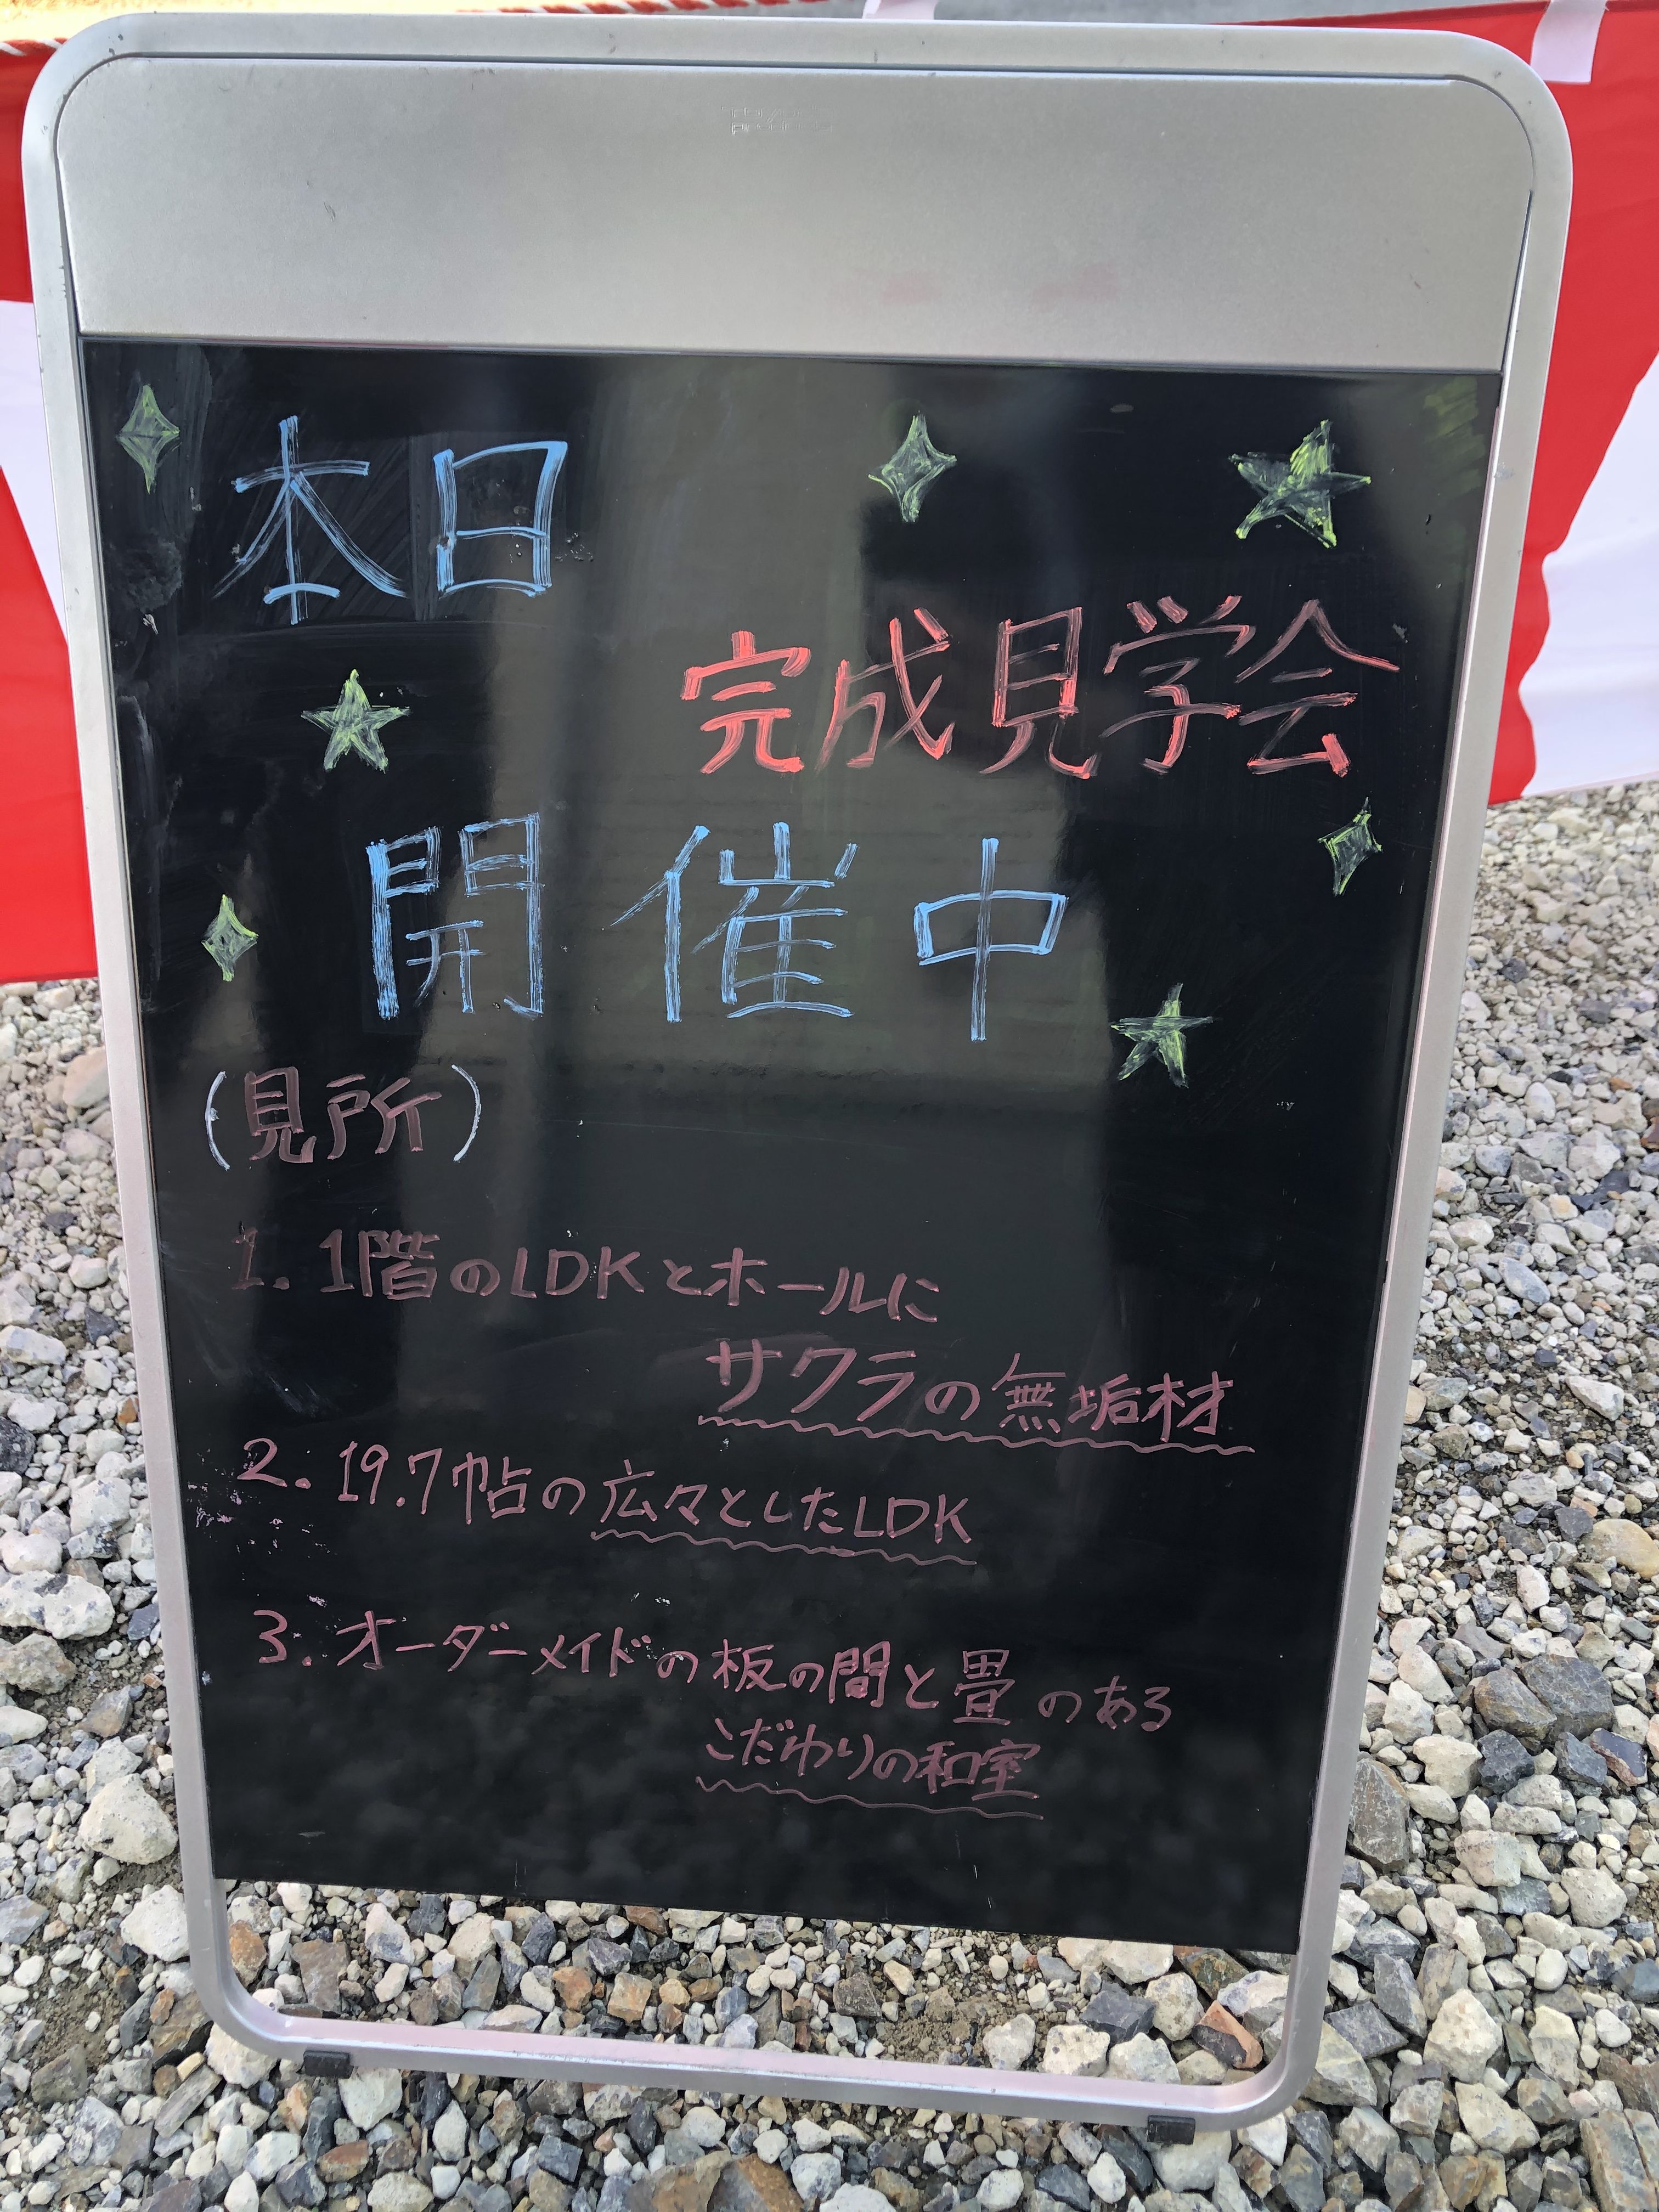 本日
完成見学会
開催中
(見所)
1. 1階のLDKとホールに
サクラの無垢材
2. 19.7帖の広々としたLDK
3. オーダーメイドの板の間と畳のある
こだわりの和室